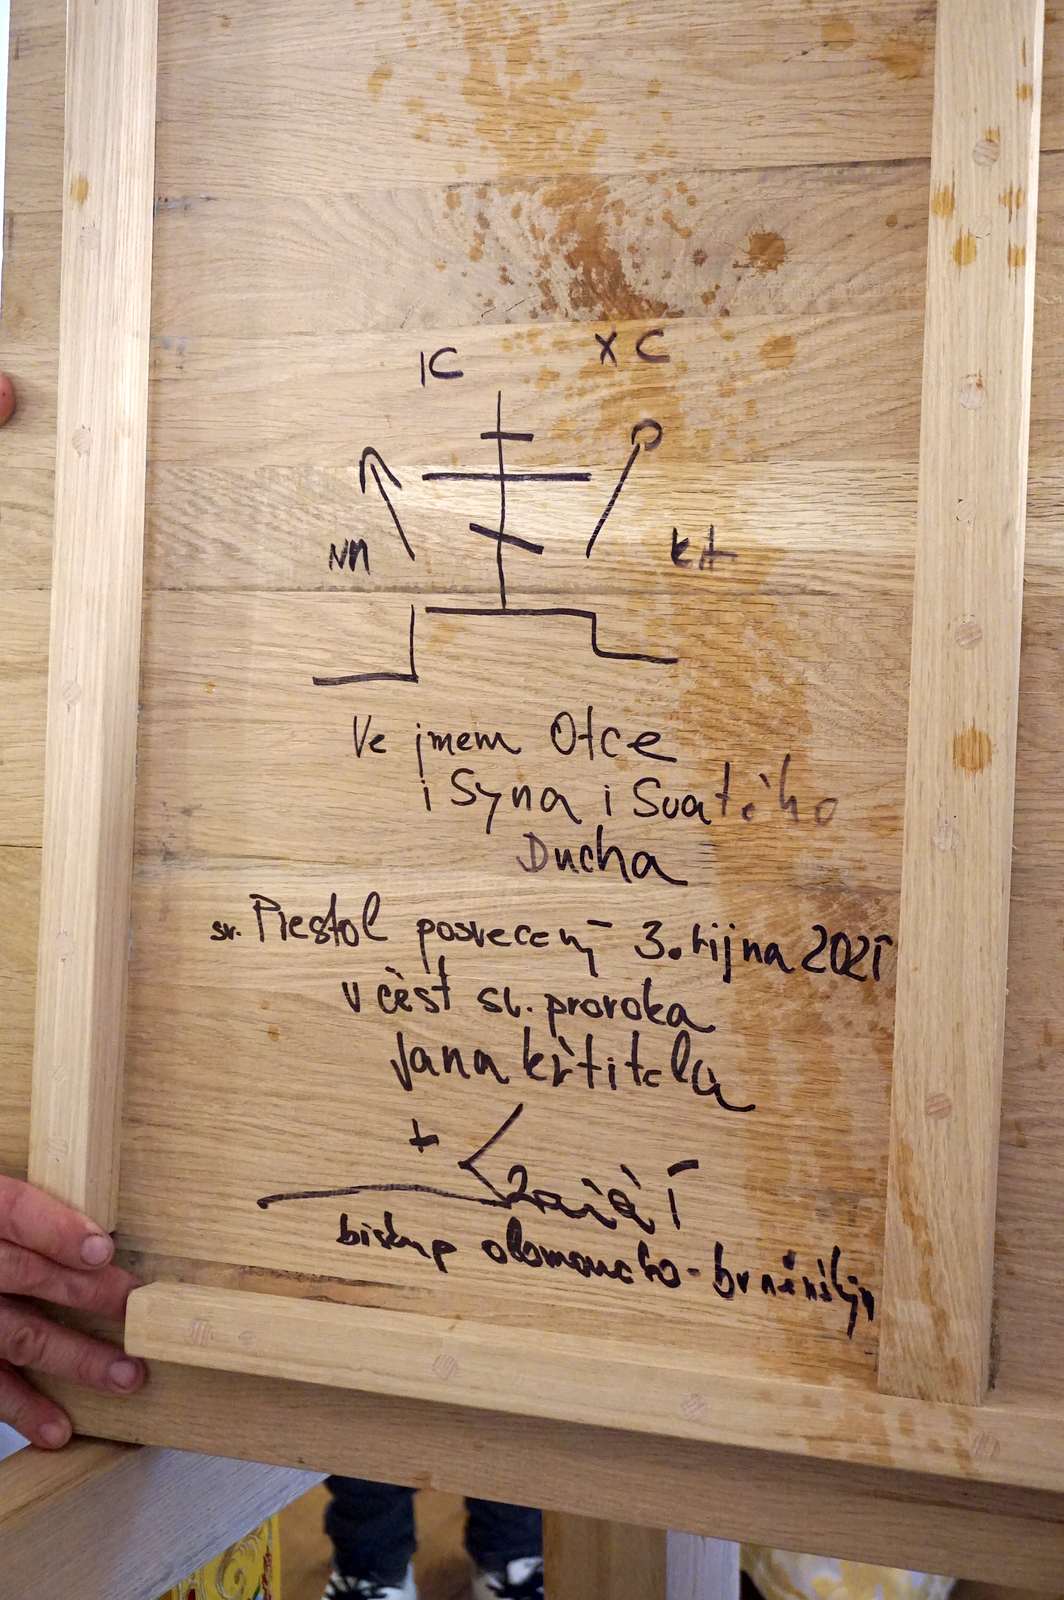 IC XC
NN KA
Ve jmem Otce
i Syna i Svatého
Ducha
sv. Prestol posvecený 3. rijna 2021
v čest sv. proroka
Jana křtitela
+
biskup olomoucko-brněnský